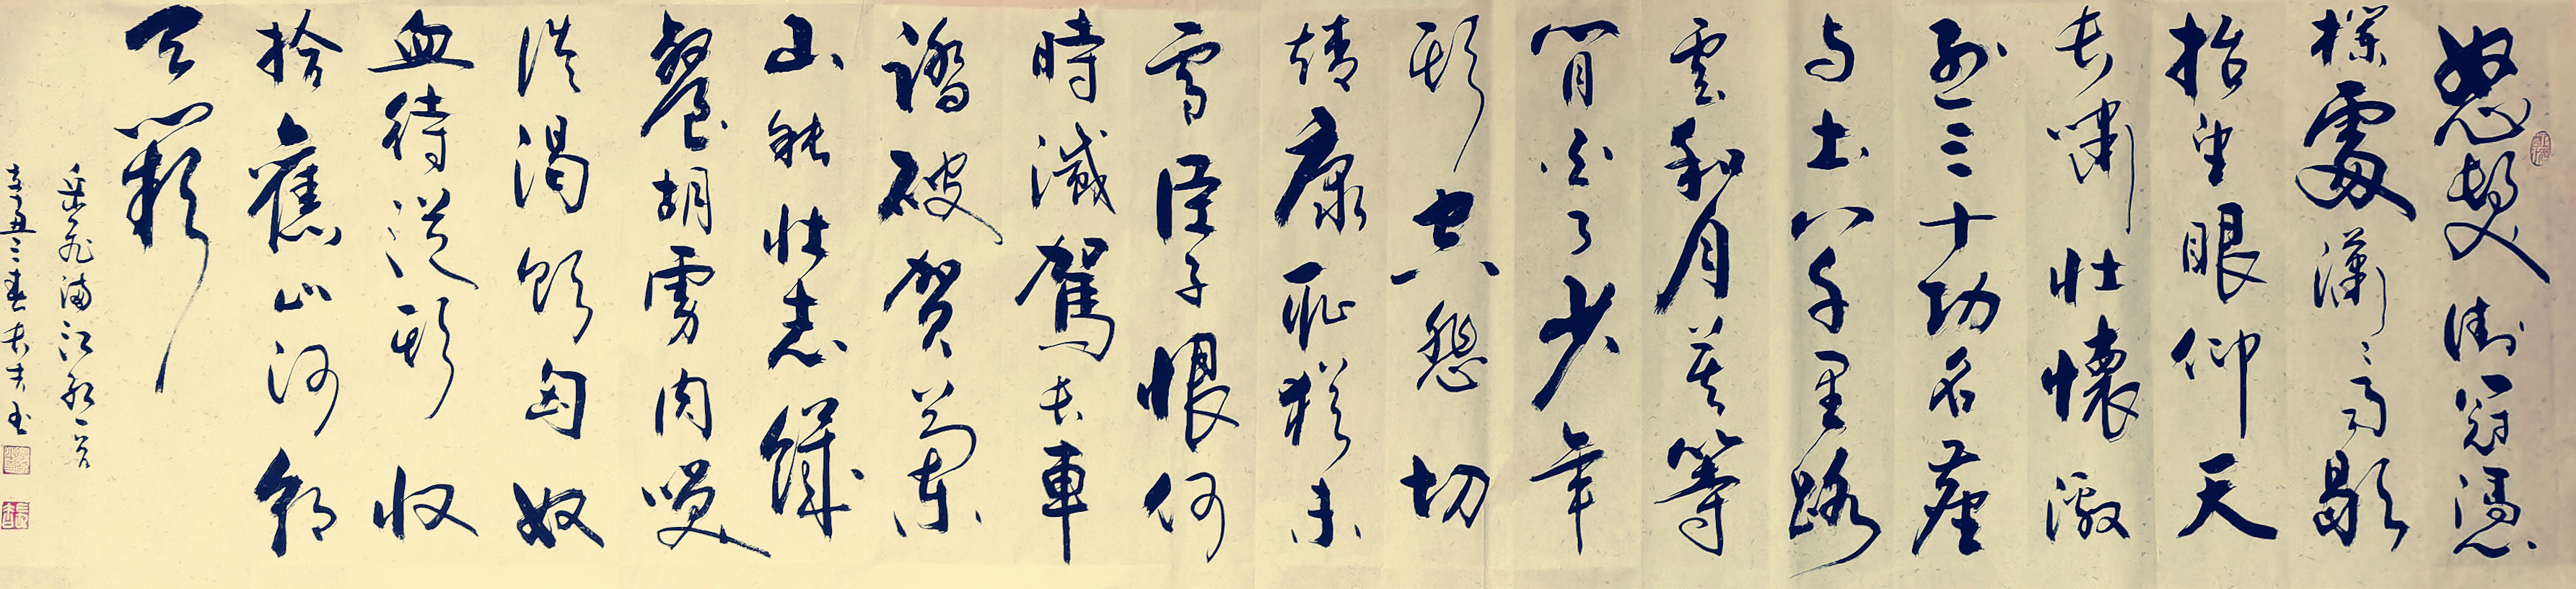 怒髮衝冠憑
欄處瀟〻雨歇
抬望眼仰天
長嘯壯懷激
烈三十功名塵
与土八千里路
雲和月莫等
閒白了少年
頭空悲切
靖康恥猶未
雪臣子恨何
時滅駕長車
踏破賀蘭
山缺壯志饑
餐胡虜肉笑
談渴飲匈奴
血待從頭收
拾舊山河朝
天闕
岳飛滿江紅一首
辛丑三春長夫书